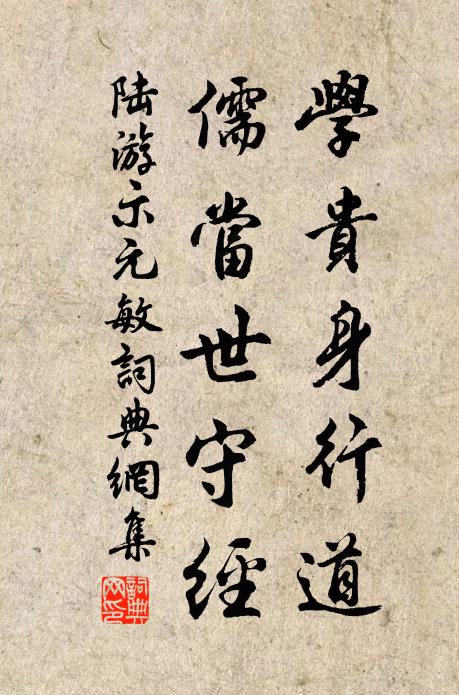 學貴身行道
儒當世守經
陸游示元敏詞典網集
詞典網印